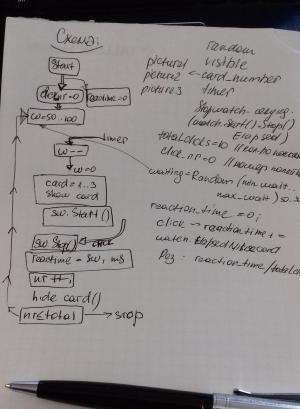 Схема:
start
reactime=0
w=50..100
timer
w--
w=0
card=1..3
show card
sw.Start()
sw.Stop()
click
reactime = sw, ms
nr++,
hide card()
nr≤total → stop
random
picture1 visible
picture2 card_number
picture3 timer
Stopwatch
(watch.Start().Stop()
Elapsed)
totalclicks=10 //
click_nr=0 //
waiting=Random(min_wait.
max_wait)
reaction_time=0;
click → reaction_time+=
watch.
reaction_time/